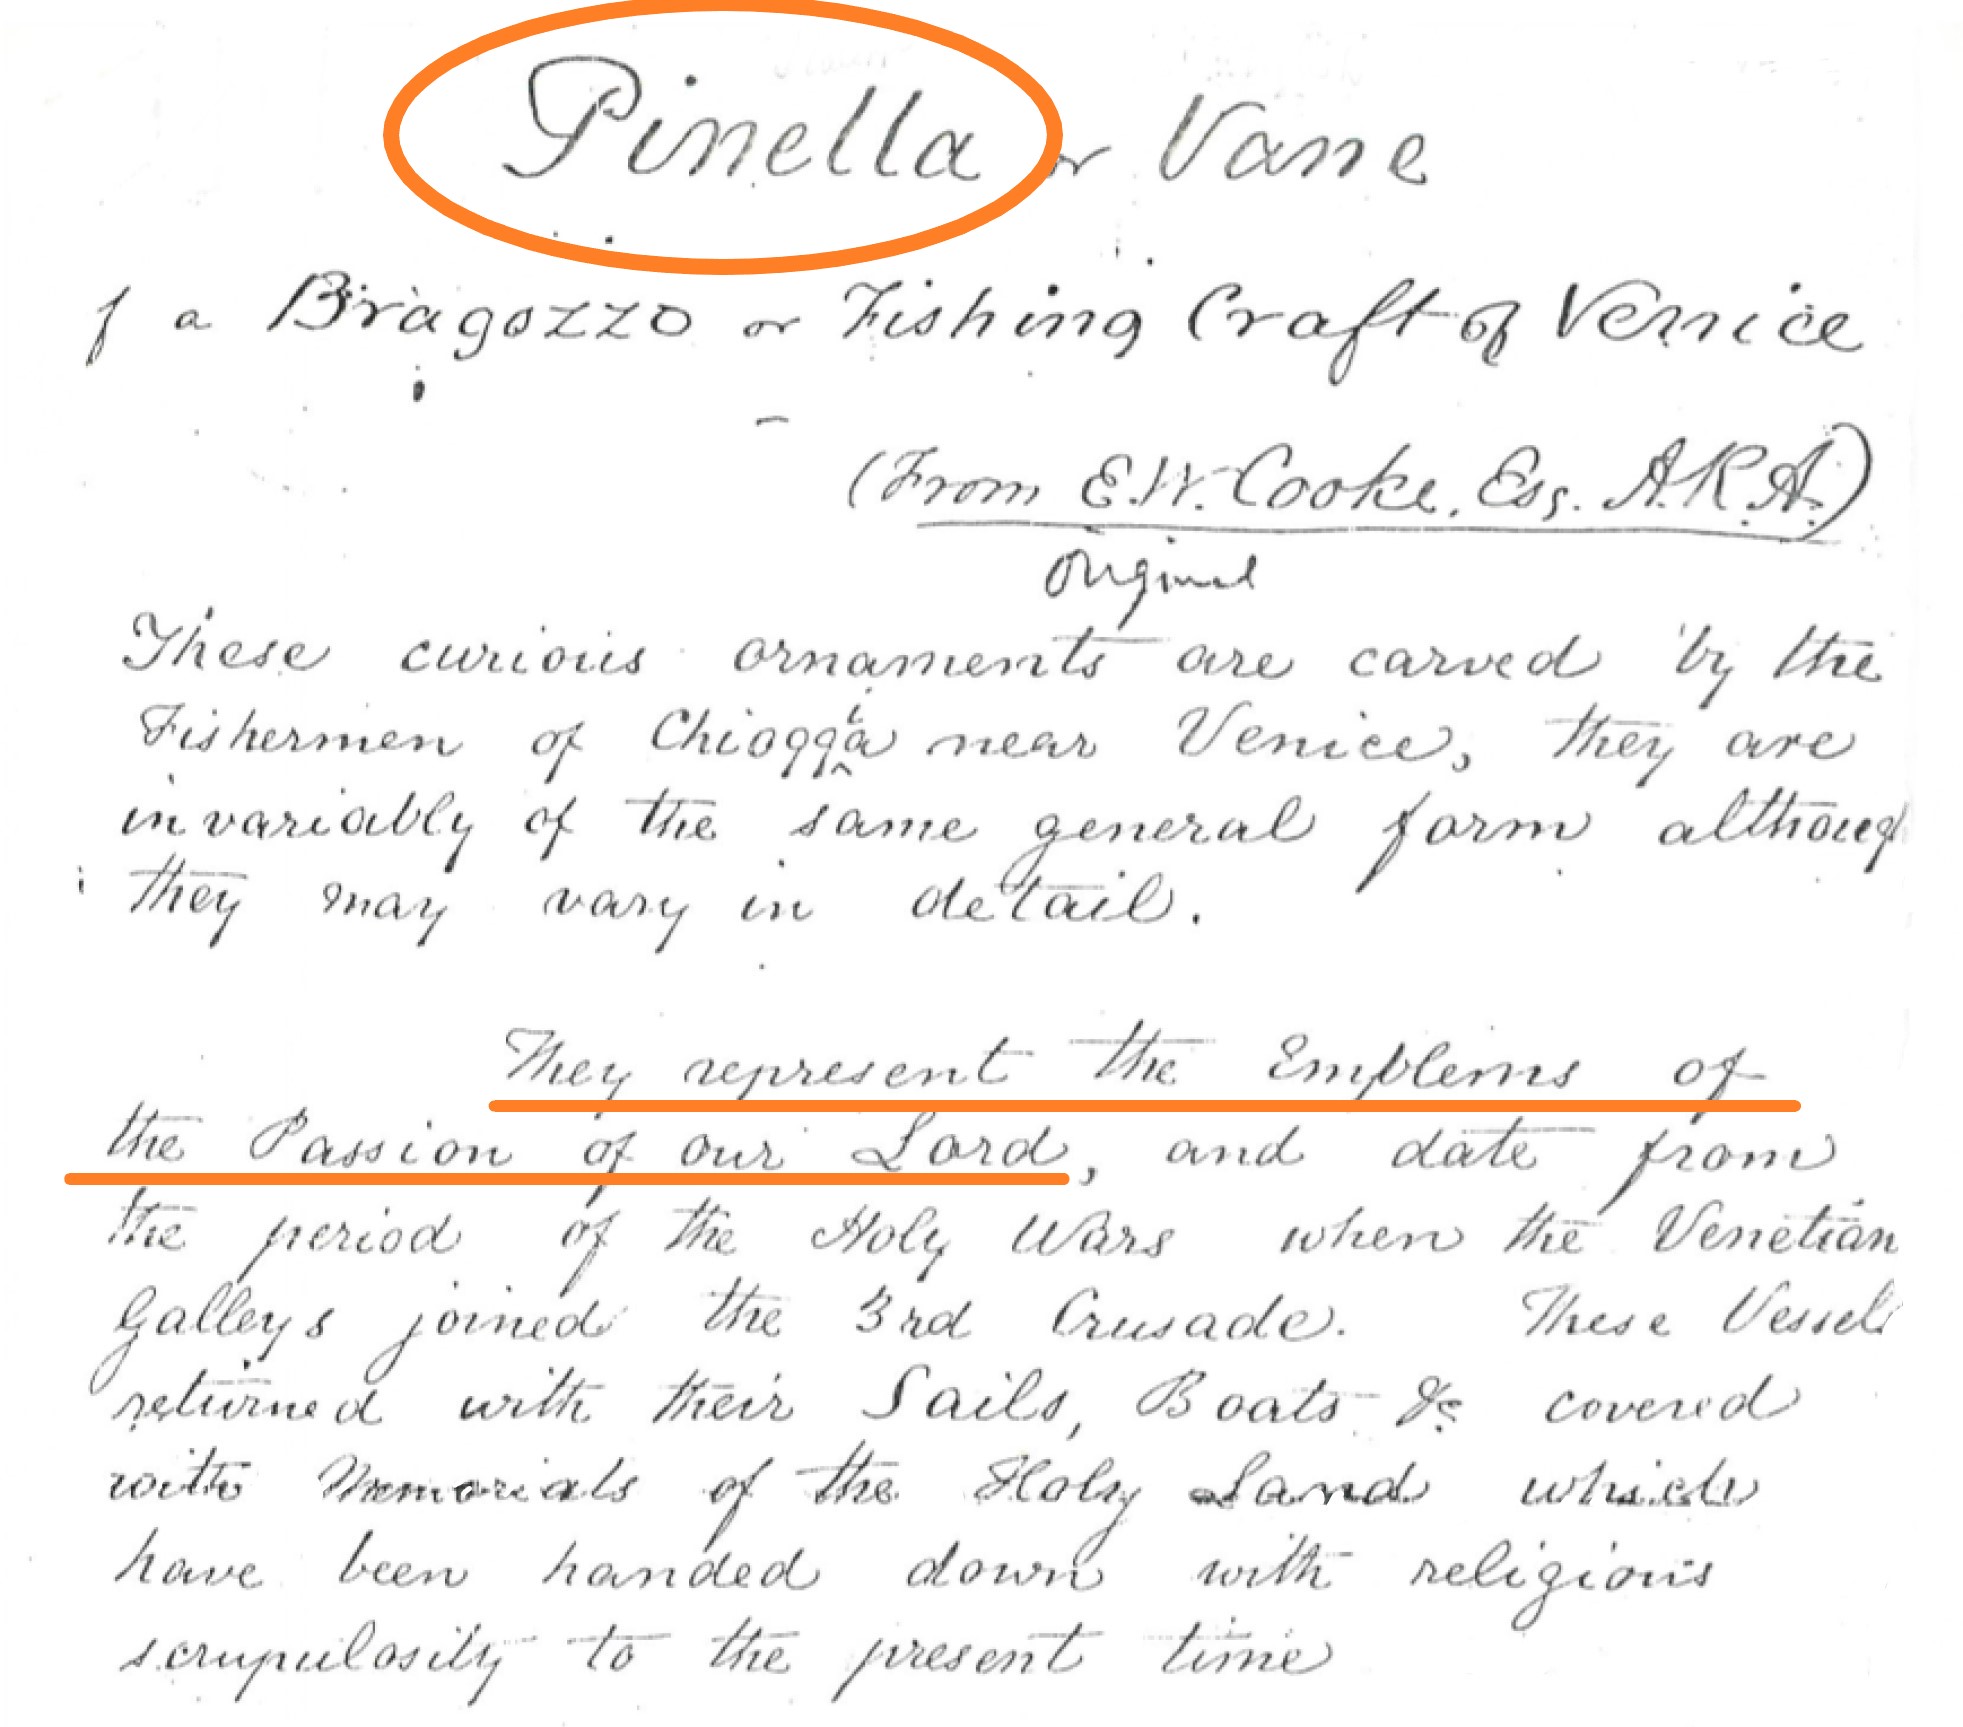 Pinella or Vane
f a Bragozzo or Fishing Craft of Venice
(From E.W. Cooke. Esq. A.R.A.)
Original
These curious ornaments are carved by the
Fishermen of Chioggia near Venice, they are
invariably of the same general form althoug
they may vary in detail.
They represent the Emblems of
the Passion of our Lord, and date from
the period of the Holy Wars when the Venetian
Galleys joined the 3rd Crusade. These Vessels
returned with their Sails, Boats &c covered
with Memorials of the Holy Land which
have been handed down with religious
scrupulosity to the present time